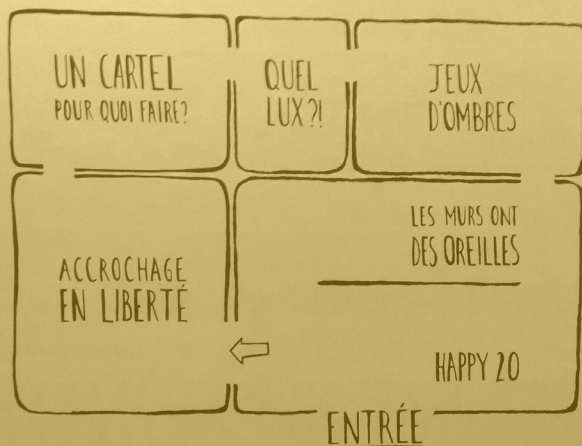 UN CARTEL
POUR QUOI FAIRE?
QUEL
LUX?!
JEUX
D'OMBRES
ACCROCHAGE
EN LIBERTÉ
LES MURS ONT
DES OREILLES
HAPPY 20
ENTRÉE